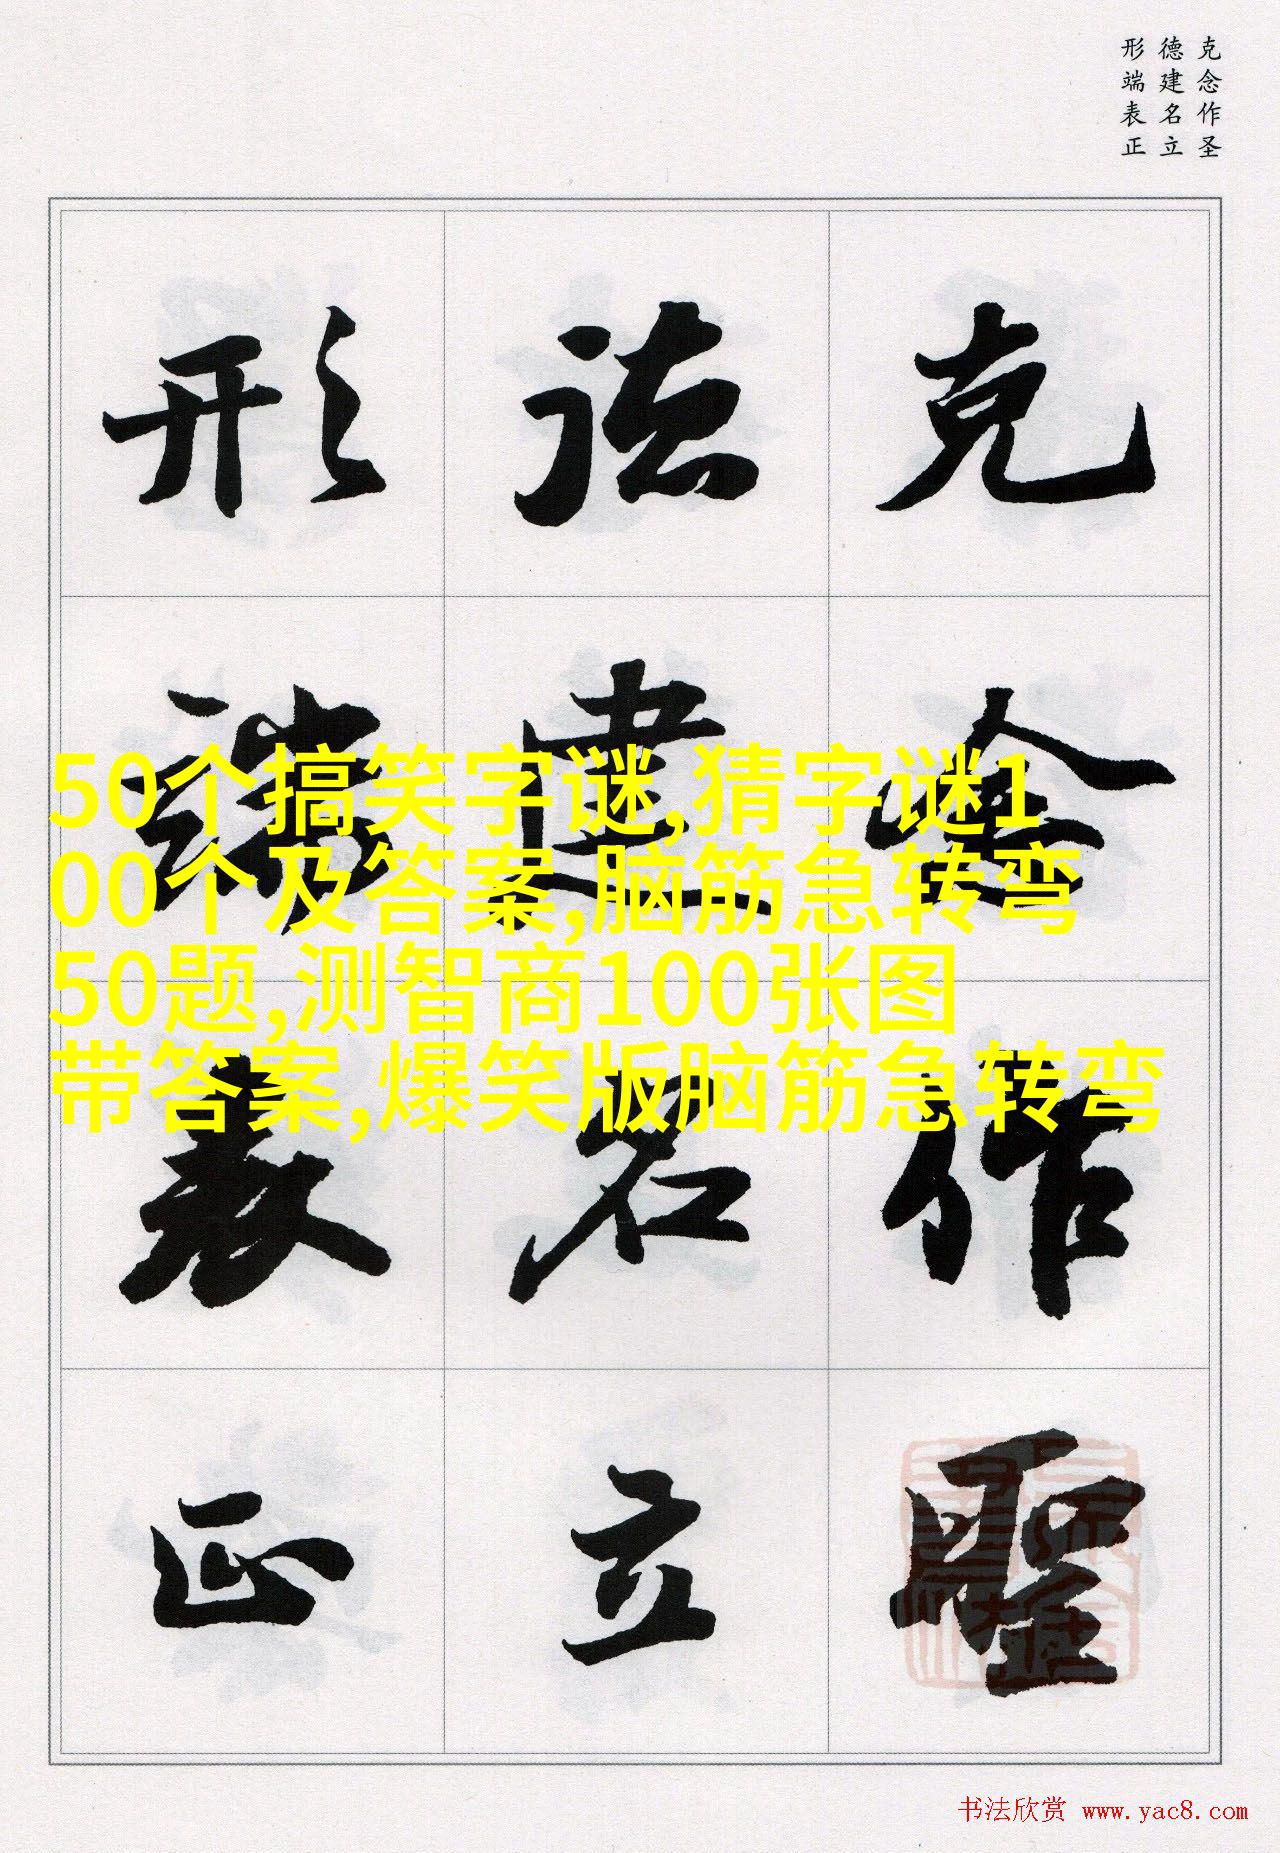 克念作圣
德建名立
形端表正
克念作聖
德建名立
形端表正
50个搞笑字谜,猜字谜1
00个及答案,脑筋急转弯
50题,测智商100张图
带答案,爆笑版脑筋急转弯
书法欣赏 www.yac8.com